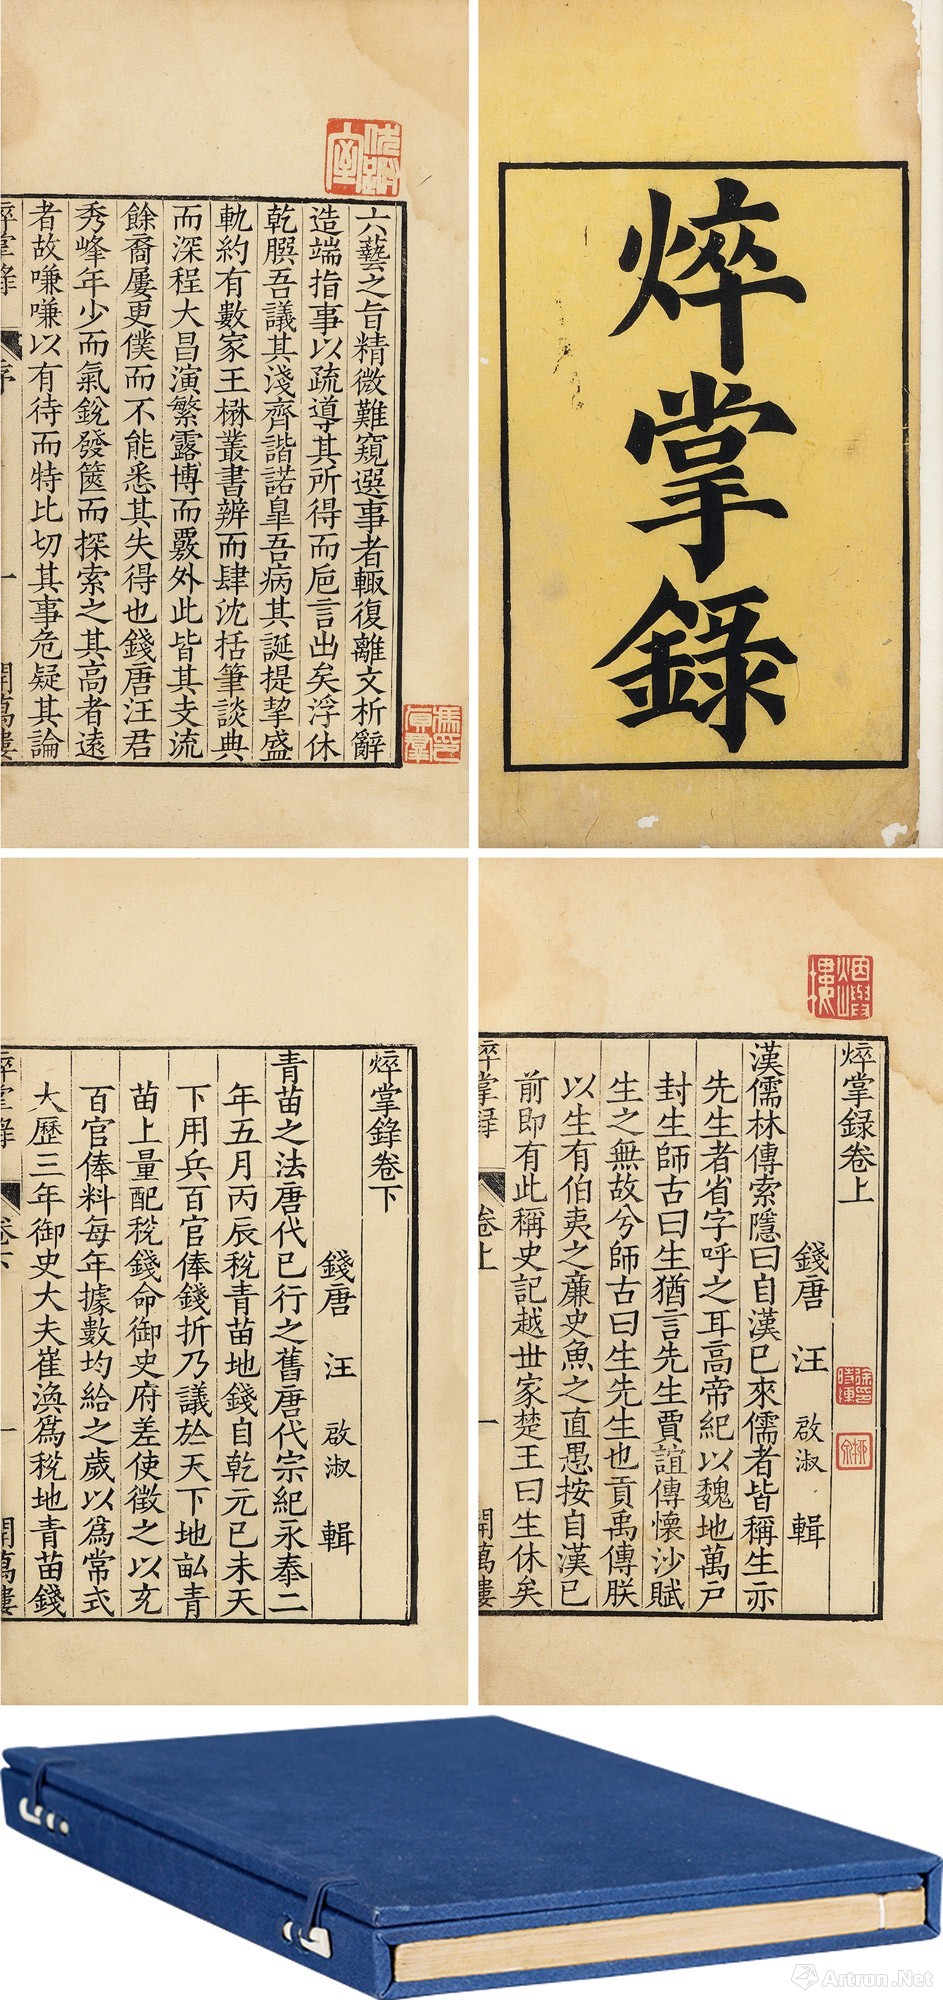 焠掌錄
六藝之旨精微難窺選事者輙復離文析辭
造端指事以疏導其所得而巵言出矣浮休
乾𦠆吾議其淺齊諧諾臯吾病其誕提挈盛
軌約有數家王楙叢書辨而肆沈括筆談典
而深程大昌演繁露博而覈外此皆其支流
餘裔屢更僕而不能悉其失得也錢唐汪君
秀峰年少而氣銳發篋而探索之其高者遠
者故嗛嗛以有待而特比切其事危疑其論
焠掌錄
序
一
開萬樓
焠掌録卷上
錢唐 汪 啟淑 輯
漢儒林傳索隱曰自漢已來儒者皆稱生亦
先生者省字呼之耳高帝紀以魏地萬戶
封生師古曰生猶言先生賈誼傳懷沙賦
生之無故兮師古曰生先生也貢禹傳朕
以生有伯夷之亷史魚之直愚按自漢已
前即有此稱史記越世家楚王曰生休矣
焠掌録
卷上
一
開萬樓
焠掌錄卷下
錢唐 汪 啟淑 輯
青苗之法唐代已行之舊唐代宗紀永泰二
年五月丙辰稅青苗地錢自乾元已來天
下用兵百官俸錢折乃議於天下地畝青
苗上量配稅錢命御史府差使徵之以充
百官俸料每年據數均給之歲以爲常式
大歷三年御史大夫崔渙爲稅地青苗錢
焠掌錄
卷下
一
開萬樓
Artron.Net